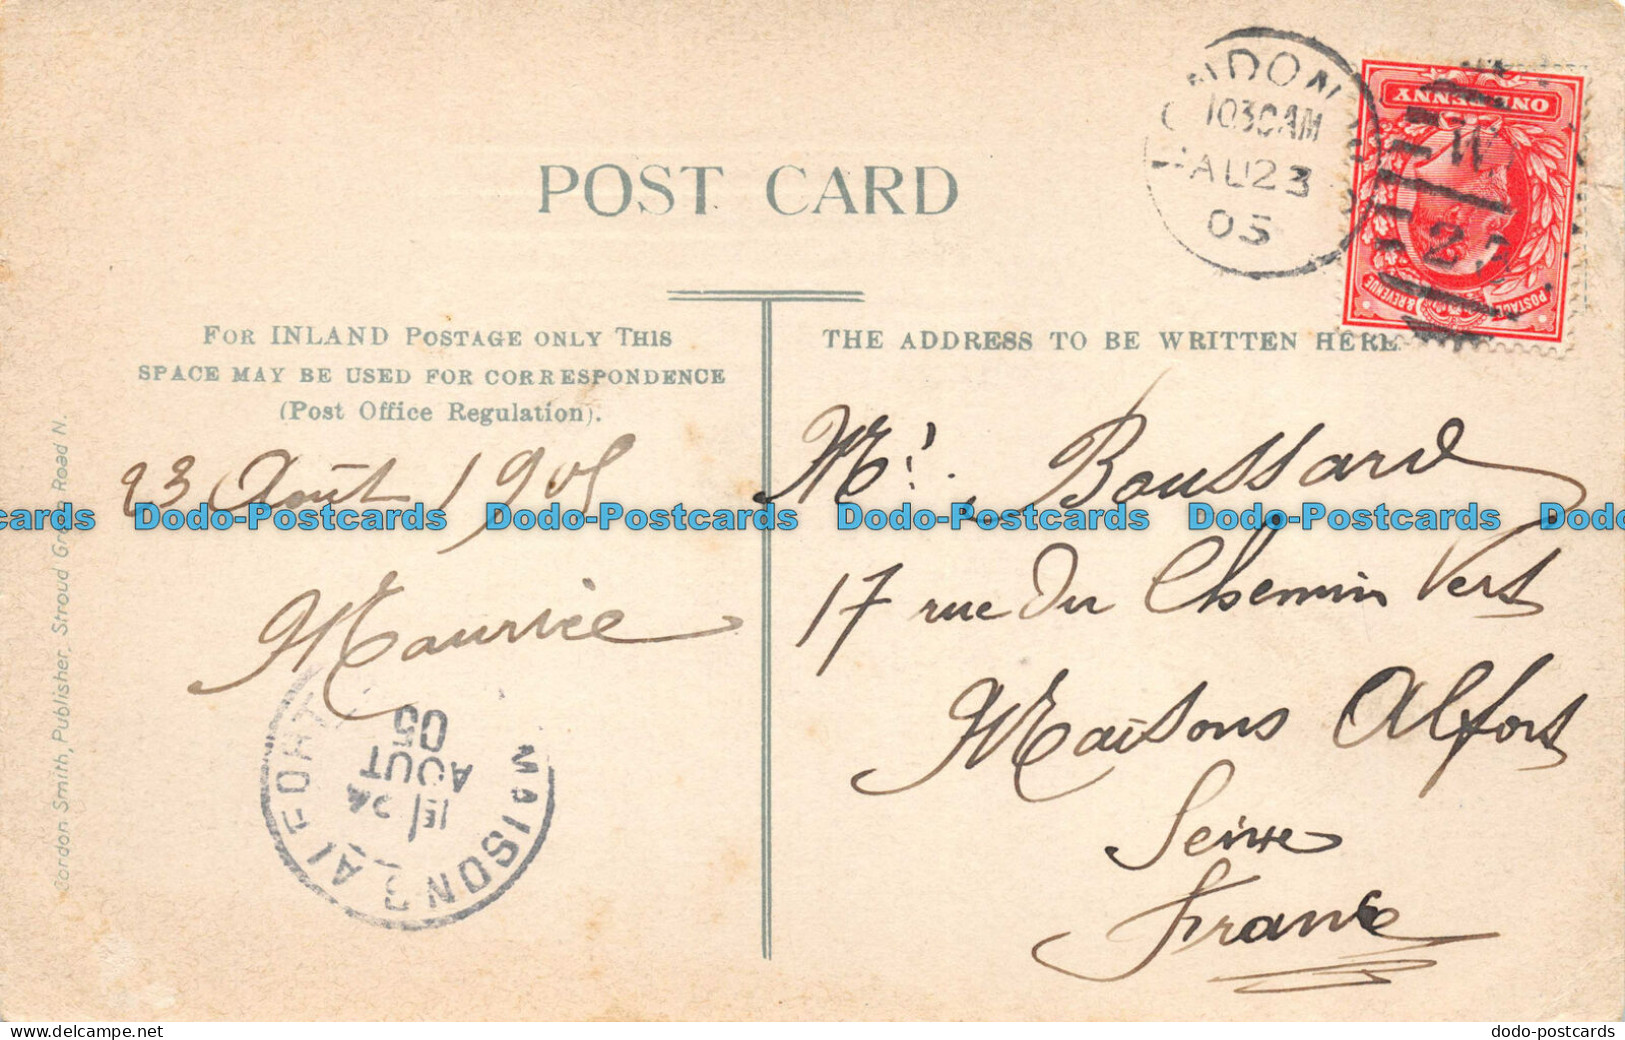 POST CARD
FOR INLAND POSTAGE ONLY THIS
SPACE MAY BE USED FOR CORRESPONDENCE
(Post Office Regulation).
THE ADDRESS TO BE WRITTEN HERE
LONDON
1030AM
AU 23
05
ONE PENNY
POSTAGE & REVENUE
W
23 Août 1905
Maurice
Mr. Boussard
17 rue du Chemin Vert
Maisons Alfort
Seine
France
MAISONS ALFORT
15/ 24
AOUT
05
Gordon Smith, Publisher, Stroud Green Road N.
cards Dodo-Postcards Dodo-Postcards Dodo-Postcards Dodo-Postcards Dodo
www.delcampe.net
dodo-postcards